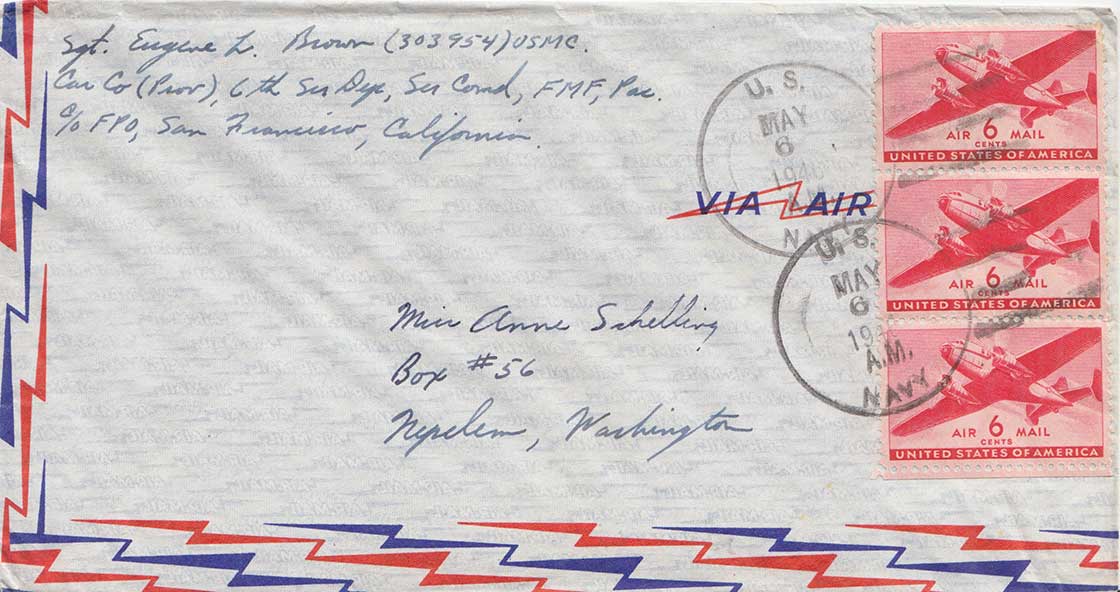 Sgt. Eugene L. Brown (303954) USMC.
Car Co (Prov), 6th Ser Dep, Ser Comd, FMF, Pac.
c/o FPO, San Francisco, California.
U. S.
MAY
6
A.M.
NAVY
VIA AIR
U. S.
MAY
6
A.M.
NAVY
AIR 6 MAIL
CENTS
UNITED STATES OF AMERICA
AIR 6 MAIL
CENTS
UNITED STATES OF AMERICA
AIR 6 MAIL
CENTS
UNITED STATES OF AMERICA
Miss Anne Schelling
Box #56
Nepelem, Washington